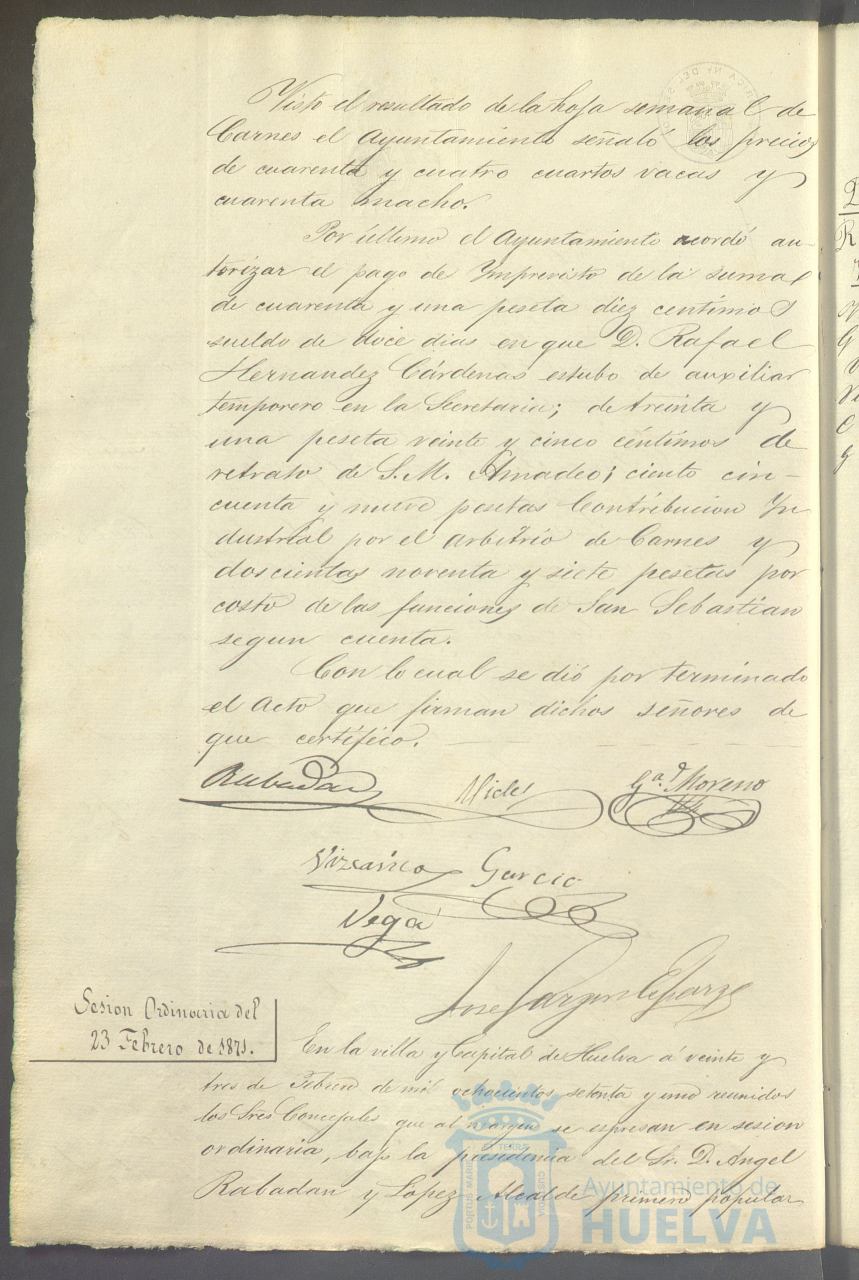 Visto el resultado de la hoja semanal de
Carnes el Ayuntamiento señaló los precios
de cuarenta y cuatro cuartos vacas y
cuarenta macho.
Por último el Ayuntamiento acordó au-
torizar el pago de Imprevisto de la suma
de cuarenta y una peseta diez centimos
sueldo de doce dias en que D. Rafael
Hernandez Cárdenas estubo de auxiliar
temporero en la Secretaria; de treinta y
una peseta veinte y cinco céntimos de
retrato de S. M. Amadeo; ciento cin-
cuenta y nueve pesetas Contribucion Yn
dustrial por el arbitrio de Carnes y
doscientas noventa y siete pesetas por
costo de las funciones de San Sebastian
segun cuenta.
Con lo cual se dió por terminado
el Acto que firman dichos señores de
que certifico.
Rabadan
Ga. Moreno
Vizcaino Garcia
Vega
Jose
Sesion Ordinaria del
23 Febrero de 1871.
En la villa y Capital de Huelva á veinte y
tres de Febrero de mil ochocientos setenta y uno reunidos
los Sres Concejales que al margen se espresan en sesion
ordinaria, bajo la presidencia del Sr. D. Angel
Rabadan y Lopez Alcalde primero popular
Ayuntamiento de
HUELVA